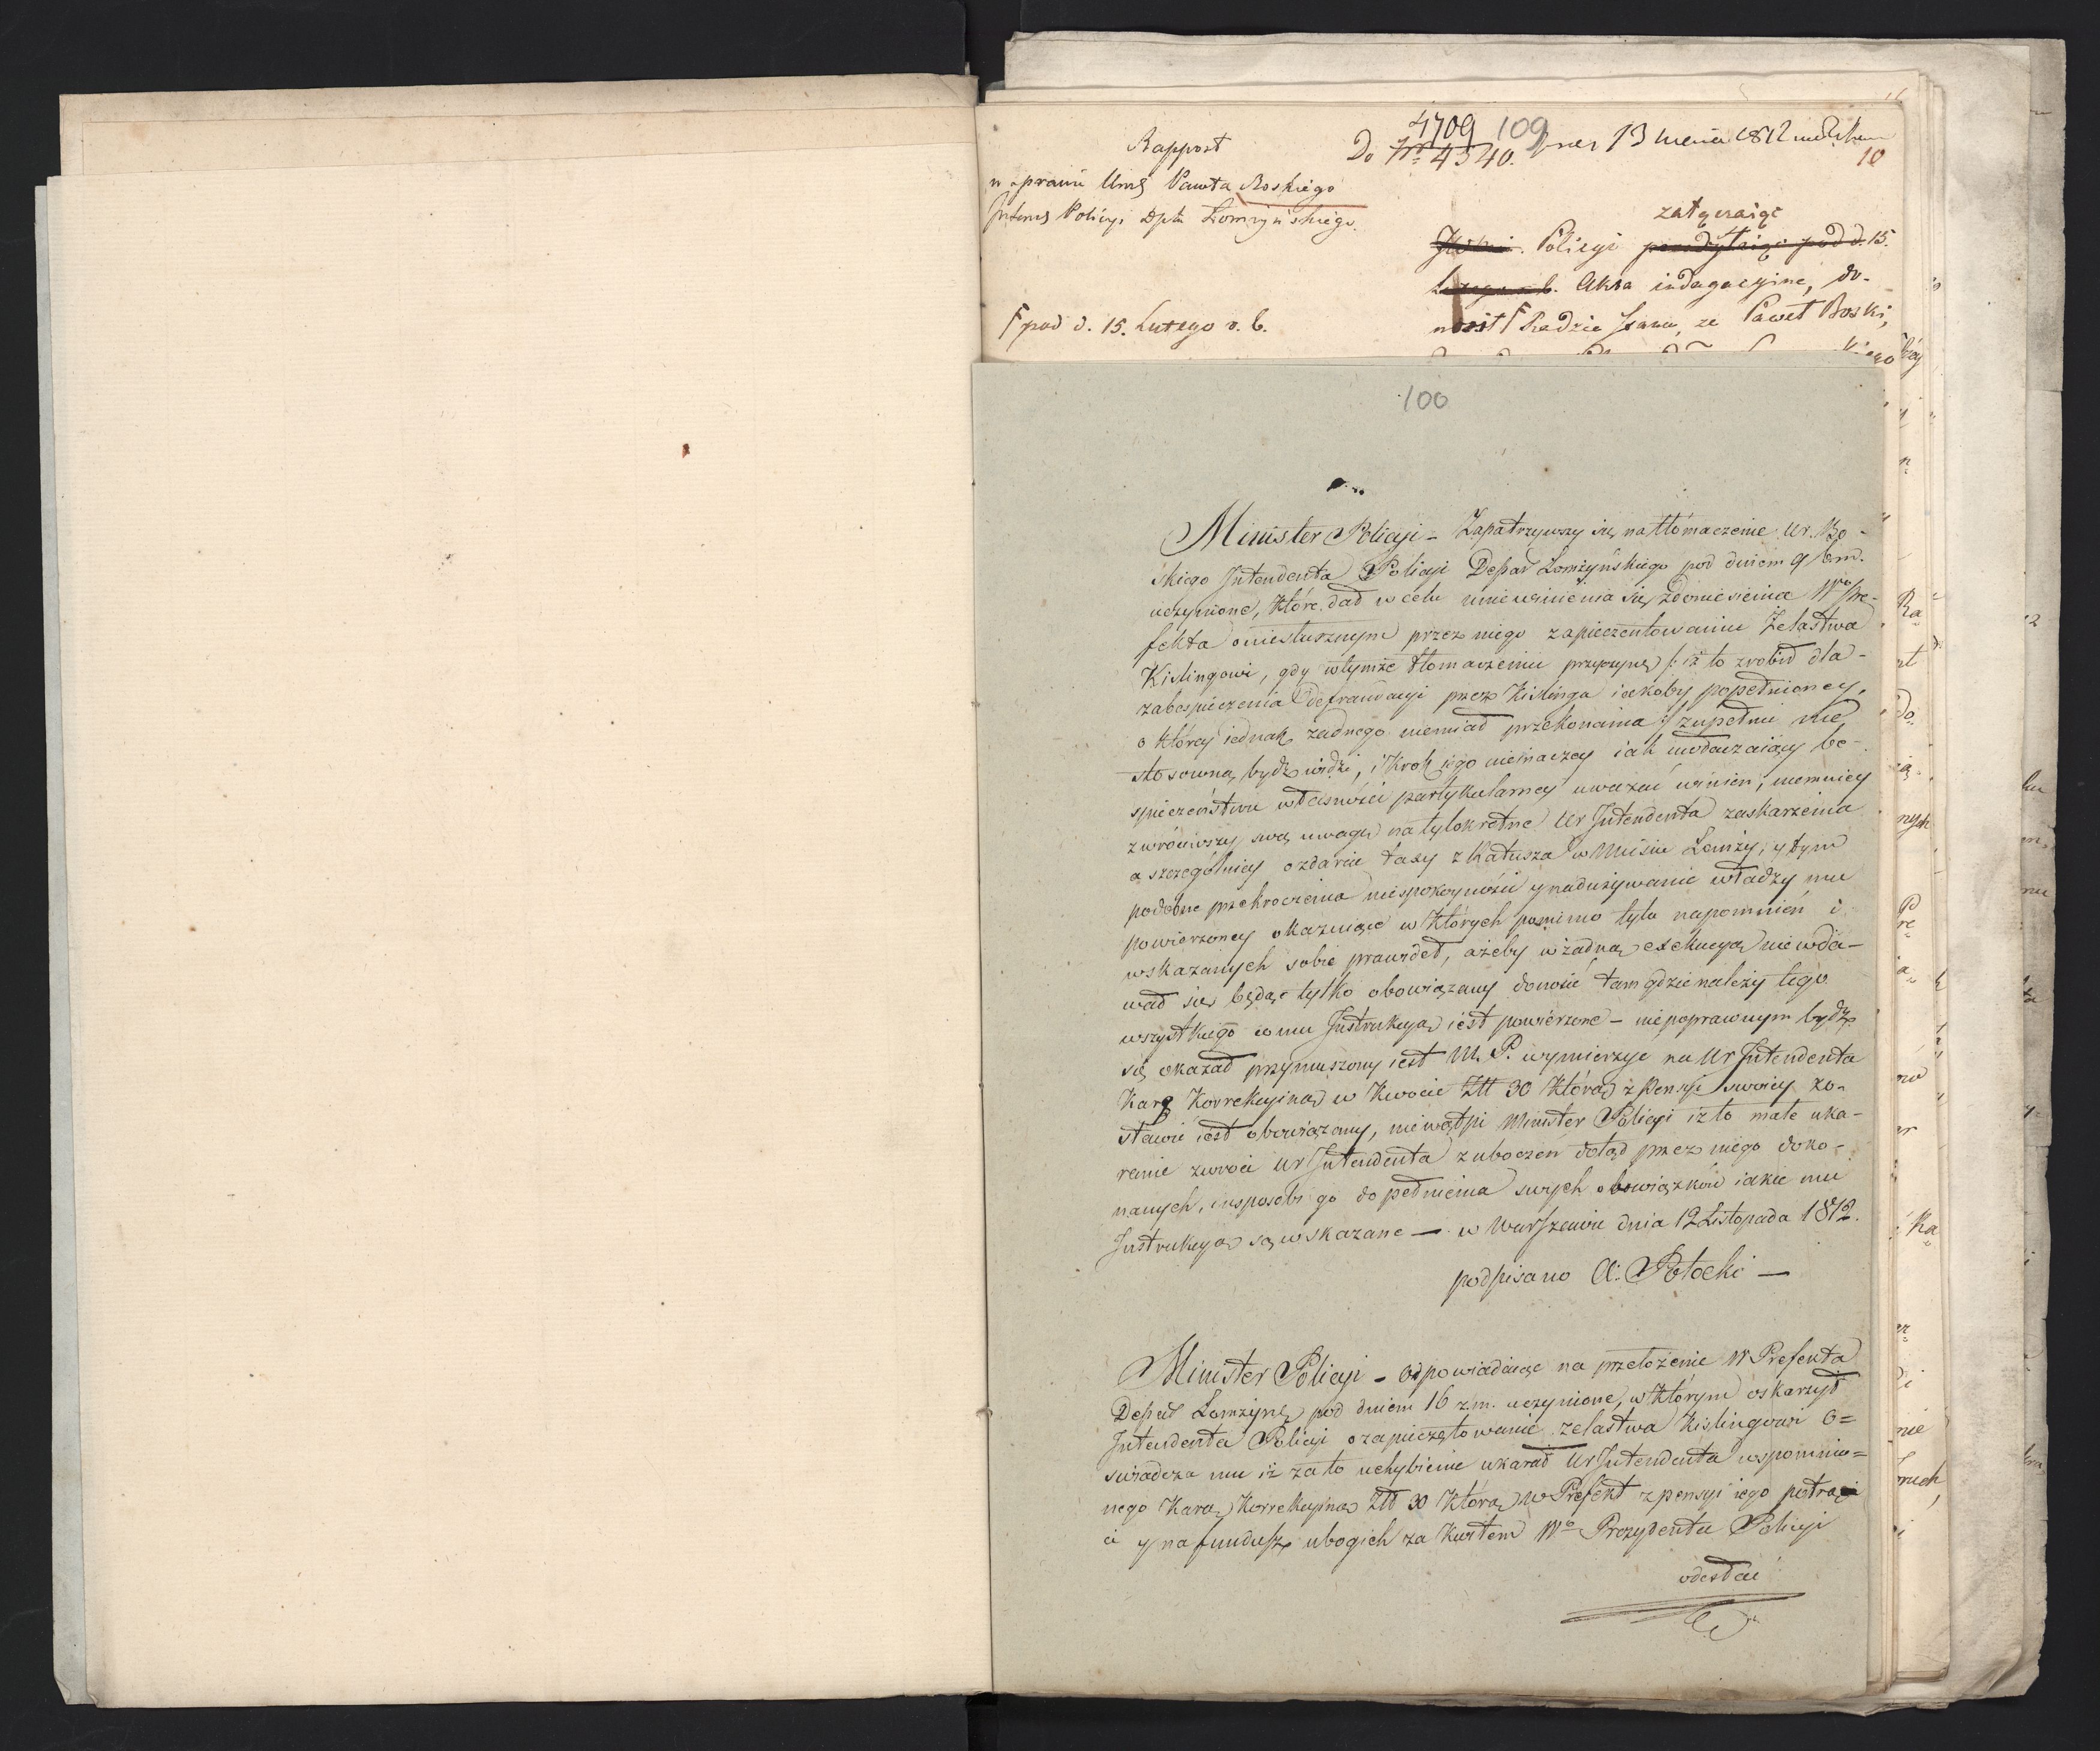 Rapport
w sprawie Ur. Pawła Boskiego
Intend. Policyi Dptu Łomżyńskiego.
4709 109
Do Nr 4340.
13 1812
10
załączaiąc
Policyi przesyłaiąc pod d. 15.
Akta indagacyine, do-
nosił Ⅎ Radzie Stanu, że Paweł Boski,
Ⅎ pod d. 15. Lutego r. b.
100
Minister Policyi – Zapatrzywszy się na tłómaczenie Ur. Bo-
skiego Intendenta Policyi Depar Łomżyńskiego pod dniem 9 b.m.
uczynione, które dał w celu uniewinienia się z doniesienia Wo Pre-
fekta o niesłusznym przez niego zapieczentowaniu Żelastwa
Kislingowi, gdy w tymże tłomaczeniu przyczynę /: iż to zrobił dla-
zabespieczenia defraudacyi przez Kislinga iakoby popełnioney,
o którey iednak żadnego niemiał przekonania :/ zupełnie nie
stosowną bydź widzi, i krok iego nieinaczey iak uwłaczaiący be-
spieczeństwu własności partykularney uważać winien; niemniey
zwróciwszy swą uwagę na tylokretne Ur Intendenta zaskarżenia
a szczególniey o zdarcie taxy z Ratusza w Mieście Łomży; y tym
podobne przekroczenia niespokoyności y nadużywanie władzy mu
powierzoney okazuiące w których pomimo tylu napomnień i
wskazanych sobie prawideł, ażeby w żadną exekucyą nie wda-
wał się będąc tylko obowiązany donosić tam gdzie należy tego
wszystkiego co mu Instrukcyą iest powierzone – niepoprawnym bydź
się okazał przymuszony iest M. P. wymierzyć na Ur Intendenta
Karę Korrekcyiną w kwocie Złł 30 którą z Pensyi swoiey zo-
stawić iest obowiązany, nie wątpi Minister Policyi iż to małe uka-
ranie zwróci Ur Intendenta z uboczeń dotąd przez niego doko-
nanych, i usposobi go do pełnienia swych obowiązków iakie mu
Instrukcyą są wskazane — w Warszawie dnia 12 Listopada 1812.
podpisano A. Potocki —
Minister Policyi – odpowiadaiąc na przełożenie W Prefekta
Depart Łomżyń pod dniem 16 z.m. uczynione, w którym oskarżył
Intendenta Policyi o zapieczętowanie żelastwa Kislingowi o=
świadcza mu iż za to uchybienie ukarał Ur Intendenta wspomnio=
nego Karą Korrekcyiną Złł 30 którą W Prefekt z pensyi iego potrą
ci y na fundusz ubogich za kwitem Wo Prezydenta Policyi
odesłać